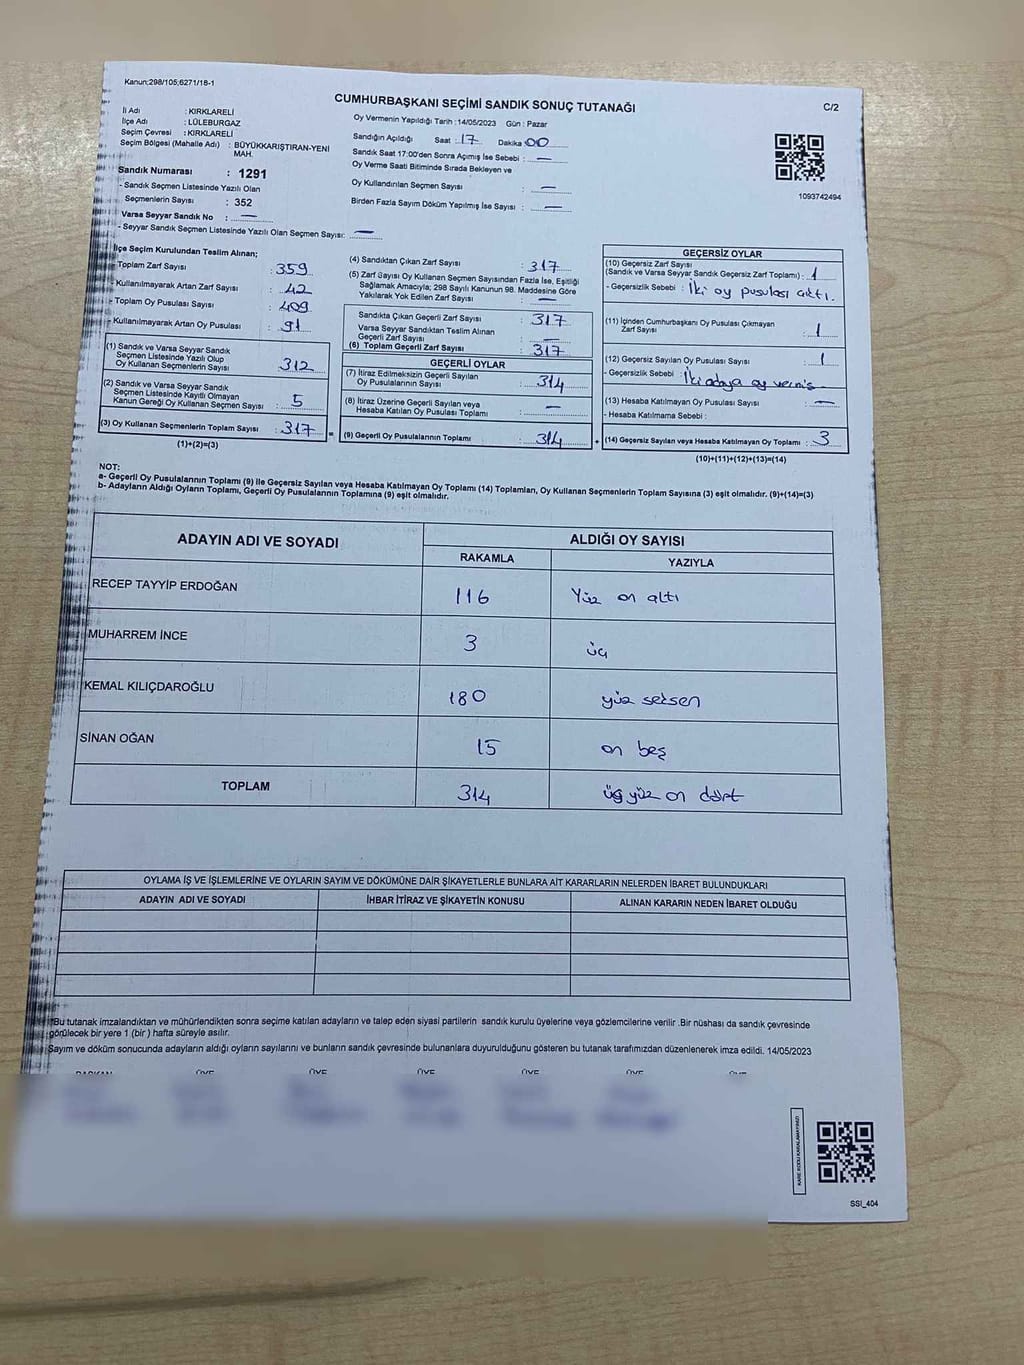 Kanun;298/105;6271/18-1
CUMHURBAŞKANI SEÇİMİ SANDIK SONUÇ TUTANAĞI
C/2
İl Adı : KIRKLARELİ
İlçe Adı : LÜLEBURGAZ
Seçim Çevresi : KIRKLARELİ
Seçim Bölgesi (Mahalle Adı) : BÜYÜKKARIŞTIRAN-YENİ MAH.
Sandık Numarası : 1291
- Sandık Seçmen Listesinde Yazılı Olan
Seçmenlerin Sayısı : 352
Varsa Seyyar Sandık No : —
- Seyyar Sandık Seçmen Listesinde Yazılı Olan Seçmen Sayısı: —
Oy Vermenin Yapıldığı Tarih :14/05/2023 Gün : Pazar
Sandığın Açıldığı Saat : 17 Dakika : 00
Sandık Saat 17:00'den Sonra Açımış İse Sebebi : —
Oy Verme Saati Bitiminde Sırada Bekleyen ve
Oy Kullandırılan Seçmen Sayısı : —
Birden Fazla Sayım Döküm Yapılmış İse Sayısı : —
1093742494
İlçe Seçim Kurulundan Teslim Alınan;
Toplam Zarf Sayısı : 359
- Kullanılmayarak Artan Zarf Sayısı : 42
- Toplam Oy Pusulası Sayısı : 409
- Kullanılmayarak Artan Oy Pusulası : 91
(1) Sandık ve Varsa Seyyar Sandık
Seçmen Listesinde Yazılı Olup
Oy Kullanan Seçmenlerin Sayısı : 312
(2) Sandık ve Varsa Seyyar Sandık
Seçmen Listesinde Kayıtlı Olmayan
Kanun Gereği Oy Kullanan Seçmen Sayısı : 5
(3) Oy Kullanan Seçmenlerin Toplam Sayısı : 317 =
(1)+(2)=(3)
(4) Sandıktan Çıkan Zarf Sayısı : 317
(5) Zarf Sayısı Oy Kullanan Seçmen Sayısından Fazla İse, Eşitliği
Sağlamak Amacıyla; 298 Sayılı Kanunun 98. Maddesine Göre
Yakılarak Yok Edilen Zarf Sayısı : —
Sandıkta Çıkan Geçerli Zarf Sayısı : 317
Varsa Seyyar Sandıktan Teslim Alınan
Geçerli Zarf Sayısı : —
(6) Toplam Geçerli Zarf Sayısı : 317
GEÇERLİ OYLAR
(7) İtiraz Edilmeksizin Geçerli Sayılan
Oy Pusulalarının Sayısı : 314
(8) İtiraz Üzerine Geçerli Sayılan veya
Hesaba Katılan Oy Pusulası Toplamı : —
(9) Geçerli Oy Pusulalarının Toplamı : 314 +
GEÇERSİZ OYLAR
(10) Geçersiz Zarf Sayısı
(Sandık ve Varsa Seyyar Sandık Geçersiz Zarf Toplamı) : 1
- Geçersizlik Sebebi : İki oy pusulası çıktı.
(11) İçinden Cumhurbaşkanı Oy Pusulası Çıkmayan
Zarf Sayısı : 1
(12) Geçersiz Sayılan Oy Pusulası Sayısı : 1
- Geçersizlik Sebebi : İki adaya oy vermiş
(13) Hesaba Katılmayan Oy Pusulası Sayısı : —
- Hesaba Katılmama Sebebi :
(14) Geçersiz Sayılan veya Hesaba Katılmayan Oy Toplamı : 3
(10)+(11)+(12)+(13)=(14)
NOT:
a- Geçerli Oy Pusulalarının Toplamı (9) ile Geçersiz Sayılan veya Hesaba Katılmayan Oy Toplamı (14) Toplamları, Oy Kullanan Seçmenlerin Toplam Sayısına (3) eşit olmalıdır. (9)+(14)=(3)
b- Adayların Aldığı Oyların Toplamı, Geçerli Oy Pusulalarının Toplamına (9) eşit olmalıdır.
ADAYIN ADI VE SOYADI
ALDIĞI OY SAYISI
RAKAMLA YAZIYLA
RECEP TAYYİP ERDOĞAN 116 Yüz on altı
MUHARREM İNCE 3 üç
KEMAL KILIÇDAROĞLU 180 yüz seksen
SİNAN OĞAN 15 on beş
TOPLAM 314 üç yüz on dört
OYLAMA İŞ VE İŞLEMLERİNE VE OYLARIN SAYIM VE DÖKÜMÜNE DAİR ŞİKAYETLERLE BUNLARA AİT KARARLARIN NELERDEN İBARET BULUNDUKLARI
ADAYIN ADI VE SOYADI İHBAR İTİRAZ VE ŞİKAYETİN KONUSU ALINAN KARARIN NEDEN İBARET OLDUĞU
*Bu tutanak imzalandıktan ve mühürlendikten sonra seçime katılan adayların ve talep eden siyasi partilerin sandık kurulu üyelerine veya gözlemcilerine verilir .Bir nüshası da sandık çevresinde
görülecek bir yere 1 (bir ) hafta süreyle asılır.
Sayım ve döküm sonucunda adayların aldığı oyların sayılarını ve bunların sandık çevresinde bulunanlara duyurulduğunu gösteren bu tutanak tarafımızdan düzenlenerek imza edildi. 14/05/2023
BAŞKAN ÜYE ÜYE ÜYE ÜYE ÜYE ÜYE
KARE KODU KARALAMAYINIZ!
SSI_404